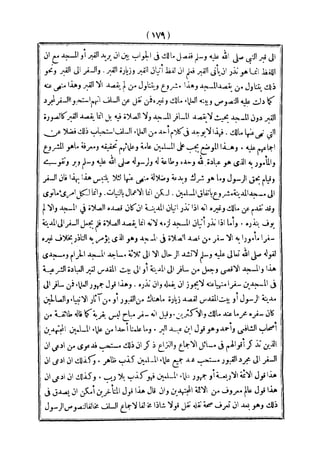 (١٧٩)
الى قبر النبي صلى الله عليه وسلم ففصل مالك في الجواب بين ان يريد القبر أو المسجد مع ان
اللفظ انما هو نذر ان يأتي القبر فعلم ان لفظ اتيان القبر وزيارة القبر. والسفر الى القبر ونحو
ذلك يتناول من يقصد المسجد وهذا مشروع ويتناول من لم يقصد الا القبر وهذا منهي عنه
كما دلت عليه النصوص وبينه العلماء مالك وغيره فمن نقل عن السلف انهم استحبوا السفر لمجرد
القبر دون المسجد بحيث لا يقصد المسافر المسجد ولا الصلاة فيه بل انما يقصد القبر كالصورة
التي نهى عنها مالك. فهذا لا يوجد في كلام أحد من العلماء السلف استحباب ذلك فضلا عن
اجماعهم عليه. وهذا الموضع يجب على المسلمين عامة وعلمائهم تحقيقه ومعرفة ماهو المشروع
والمأمور به الذي هو عبادة لله وحده وطاعة له ولرسوله صلى الله عليه وسلم وبر وتقوى
وقيام بحق الرسول وما هو شرك وبدعة وضلالة منهي عنها لئلا يلتبس هذا بهذا فان السفر
الى مسجد المدينة مشروع باتفاق المسلمين. لكن انما الاعمال بالنيات. وانما لكل امرئ مانوى
وقد تقدم عن مالك وغيره انه اذا نذر اتيان المدينة ان كان قصده الصلاة في المسجد والا لم
يوف بنذره. وأما اذا نذر أتيان المسجد لزمه لانه انما يقصد الصلاة فلم يجعل السفر الى المدينة
سفرا مأمورا به الا سفر من قصد الصلاة في المسجد وهو الذي يؤمر به الناذر بخلاف غيره
لقوله صلى الله تعالى عليه وسلم لا تشد الرحال الا الى ثلاثة مساجد المسجد الحرام ومسجدي
هذا والمسجد الاقصى وجعل من سافر الى المدينة أو الى بيت المقدس لغير العبادة الشرعية
في المسجدين سفرا منهيا عنه لا يجوز ان يفعله وان نذره. وهذا قول جمهور العلماء. فمن سافر الى
مدينة الرسول أو بيت المقدس لقصد زيارة ماهناك من القبور أو من آثار الانبياء والصالحين
كان سفره محرما عند مالك والاكثرين. وقيل انه سفر مباح ليس بقربة كما قاله طائفة من
أصحاب الشافعي وأحمد وهو قول ابن عبد البر. وما علمنا أحدا من علماء المسلمين المجتهدين
الذين تذكر أقوالهم في مسائل الاجماع والنزاع ذكر ان ذلك مستحب فدعوى من ادعى ان
السفر الى مجرد القبور مستحب عند جميع علماء المسلمين كذب ظاهر. وكذلك ان ادعى ان
هذا قول الائمة الاربعة أو جمهور علماء المسلمين فهو كذب بلا ريب. وكذلك ان ادعى ان
هذا قول عالم معروف من الائمة المجتهدين وان قال هذا قول المتأخرين أمكن ان يصدق في
ذلك وهو بعد ان تعرف صحة نقله نقل قولا شاذا مخالفا لاجماع السلف مخالفا لنصوص الرسول